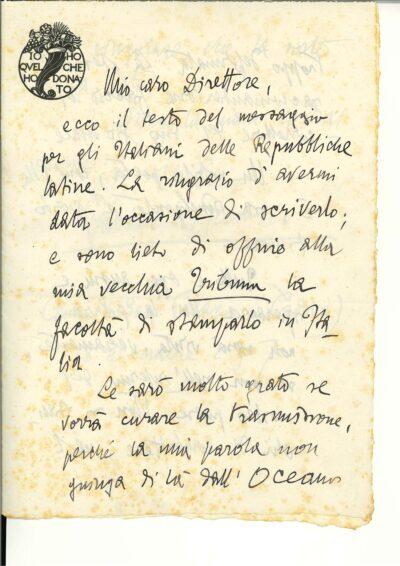 IO HO
QVEL CHE
HO DONA
TO
Mio caro Direttore,
ecco il testo del messaggio
per gli Italiani delle Repubbliche
latine. La ringrazio di avermi
data l'occasione di scriverlo;
e sono lieto di offrire alla
mia vecchia Tribuna la
facoltà di stamparlo in Ita-
lia.
Le sarò molto grato se
vorrà curare la trasmissione,
perché la mia parola non
giunga di là dall'Oceano